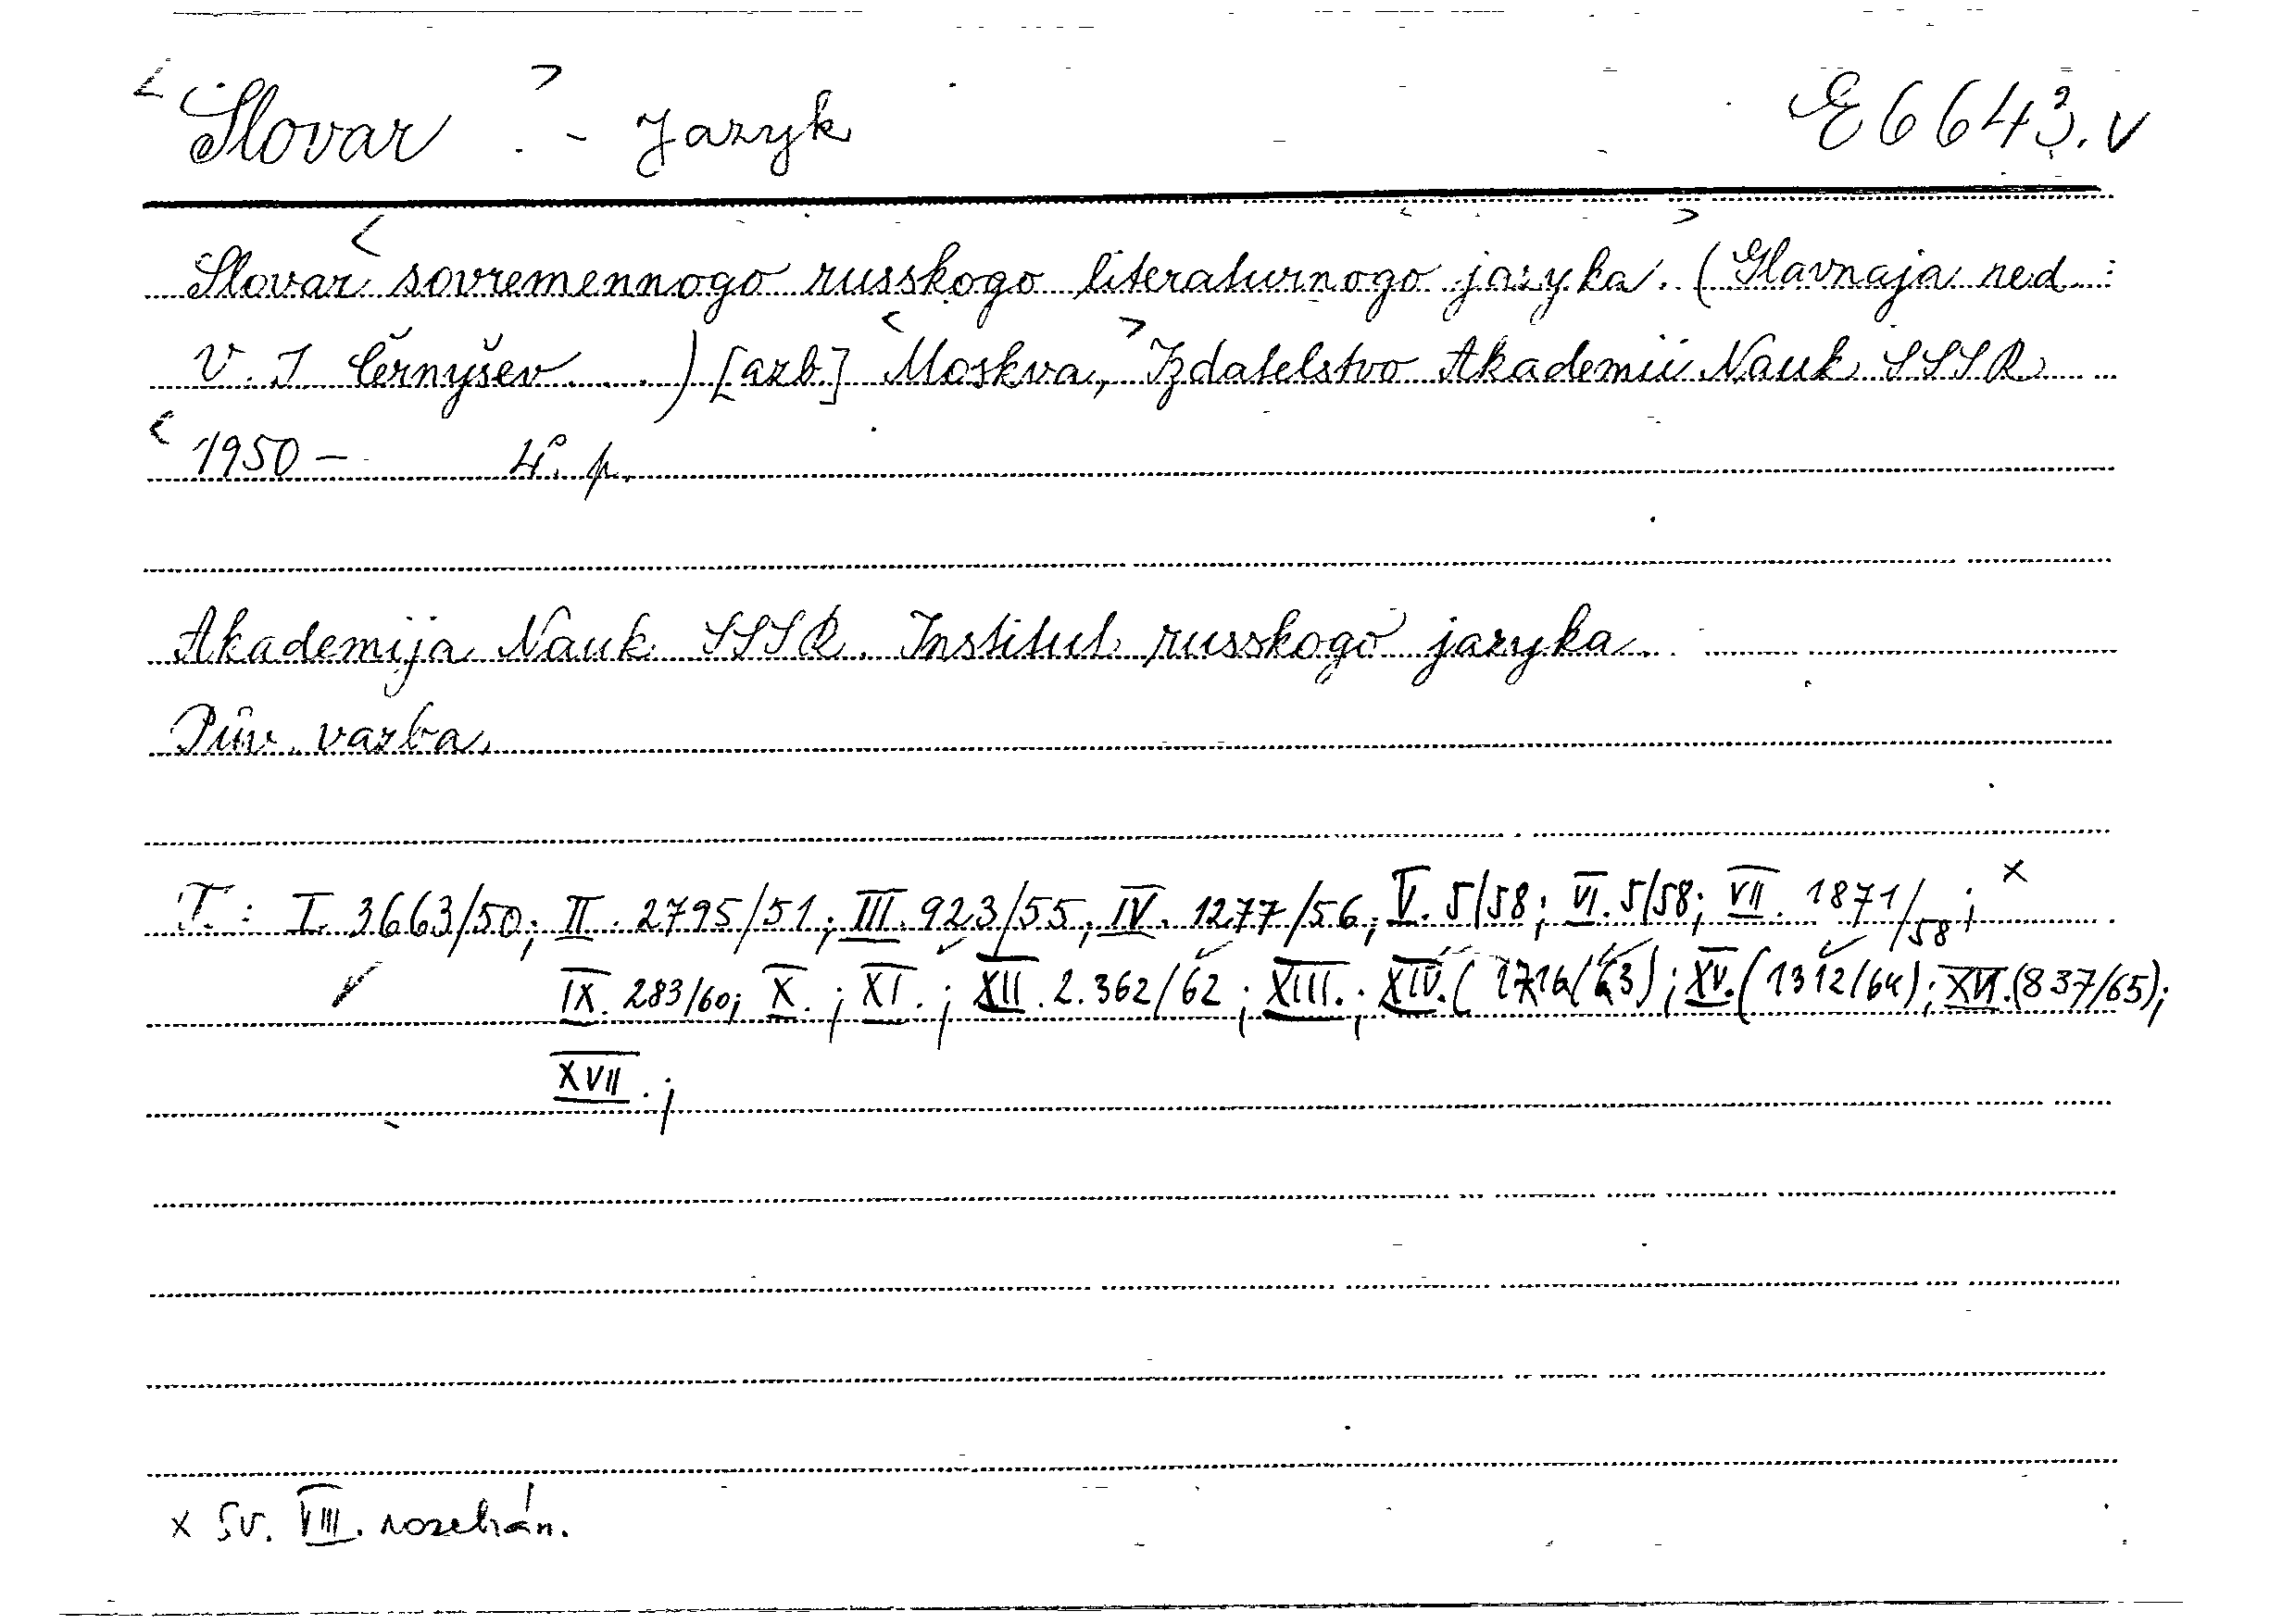 <Slovar> - Jazyk E 6643.v
Slovar <sovremennogo russkogo literaturnogo jazyka>. (Glavnaja red.:
V. I. Černyšev ...) [azb.] <Moskva,> Izdatelstvo Akademii Nauk SSSR
<1950 - 4°. p.
Akademija Nauk SSSR. Institut russkogo jazyka.
Pův. vazba.
T.: I. 3663/50; II. 2795/51; III. 923/55; IV. 1277/56; V. 5/58; VI. 5/58; VII. 1871/58; x
✓ IX. 283/60; X.; XI.; XII. 2.362/62; XIII.; XIV. (1716/63); XV. (1312/64); XVI. (837/65);
XVII.;
x Sv. VIII. rozebrán.